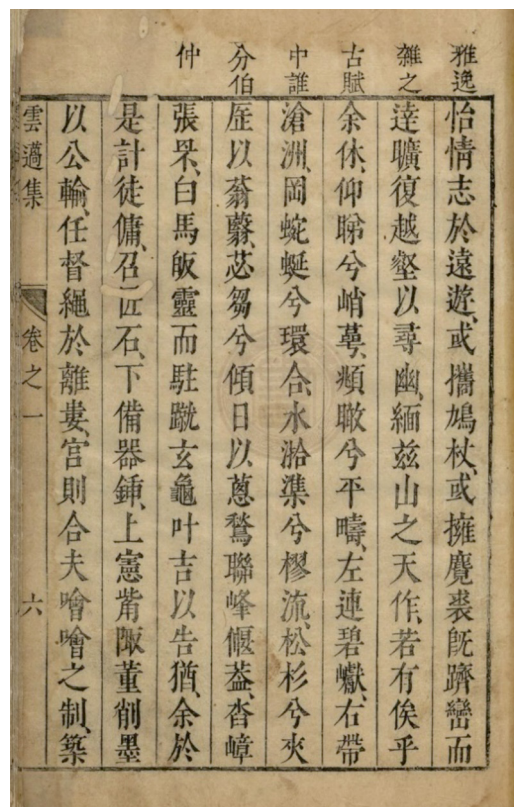 雅逸
雜之
古賦
中誰
分伯
仲
怡情志於遠遊、或攜鳩杖、或擁麑裘旣躋巒而
逹曠復越壑以尋幽、緬兹山之天作、若有俟乎
余休、仰睇兮峭蕚、頫瞰兮平疇、左連碧巘、右帶
滄洲、岡蛇蜒兮環合、水湁潗兮樛流、松杉兮夾
厓以蓊蘙、苾芻兮傾日以蔥鶩聯峰偃葢、沓嶂
張帟、白馬皈靈而駐蹴玄龜叶吉以告猶、余於
是計徒傭、召匠石、下備器鍾、上憲觜陬董削墨
以公輸、任督繩於離婁、宮則合夫噲噲之制、築
雲邁集 卷之一 六